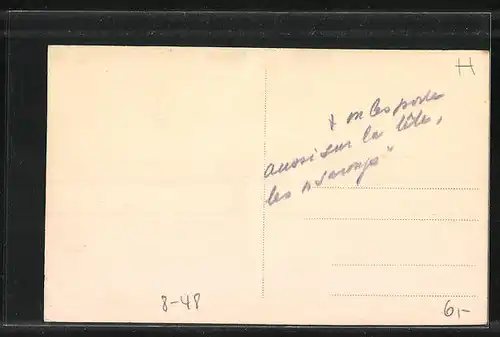 H
x on les porte
aussi sur la tête,
les "sarongs"
8-48
6,-